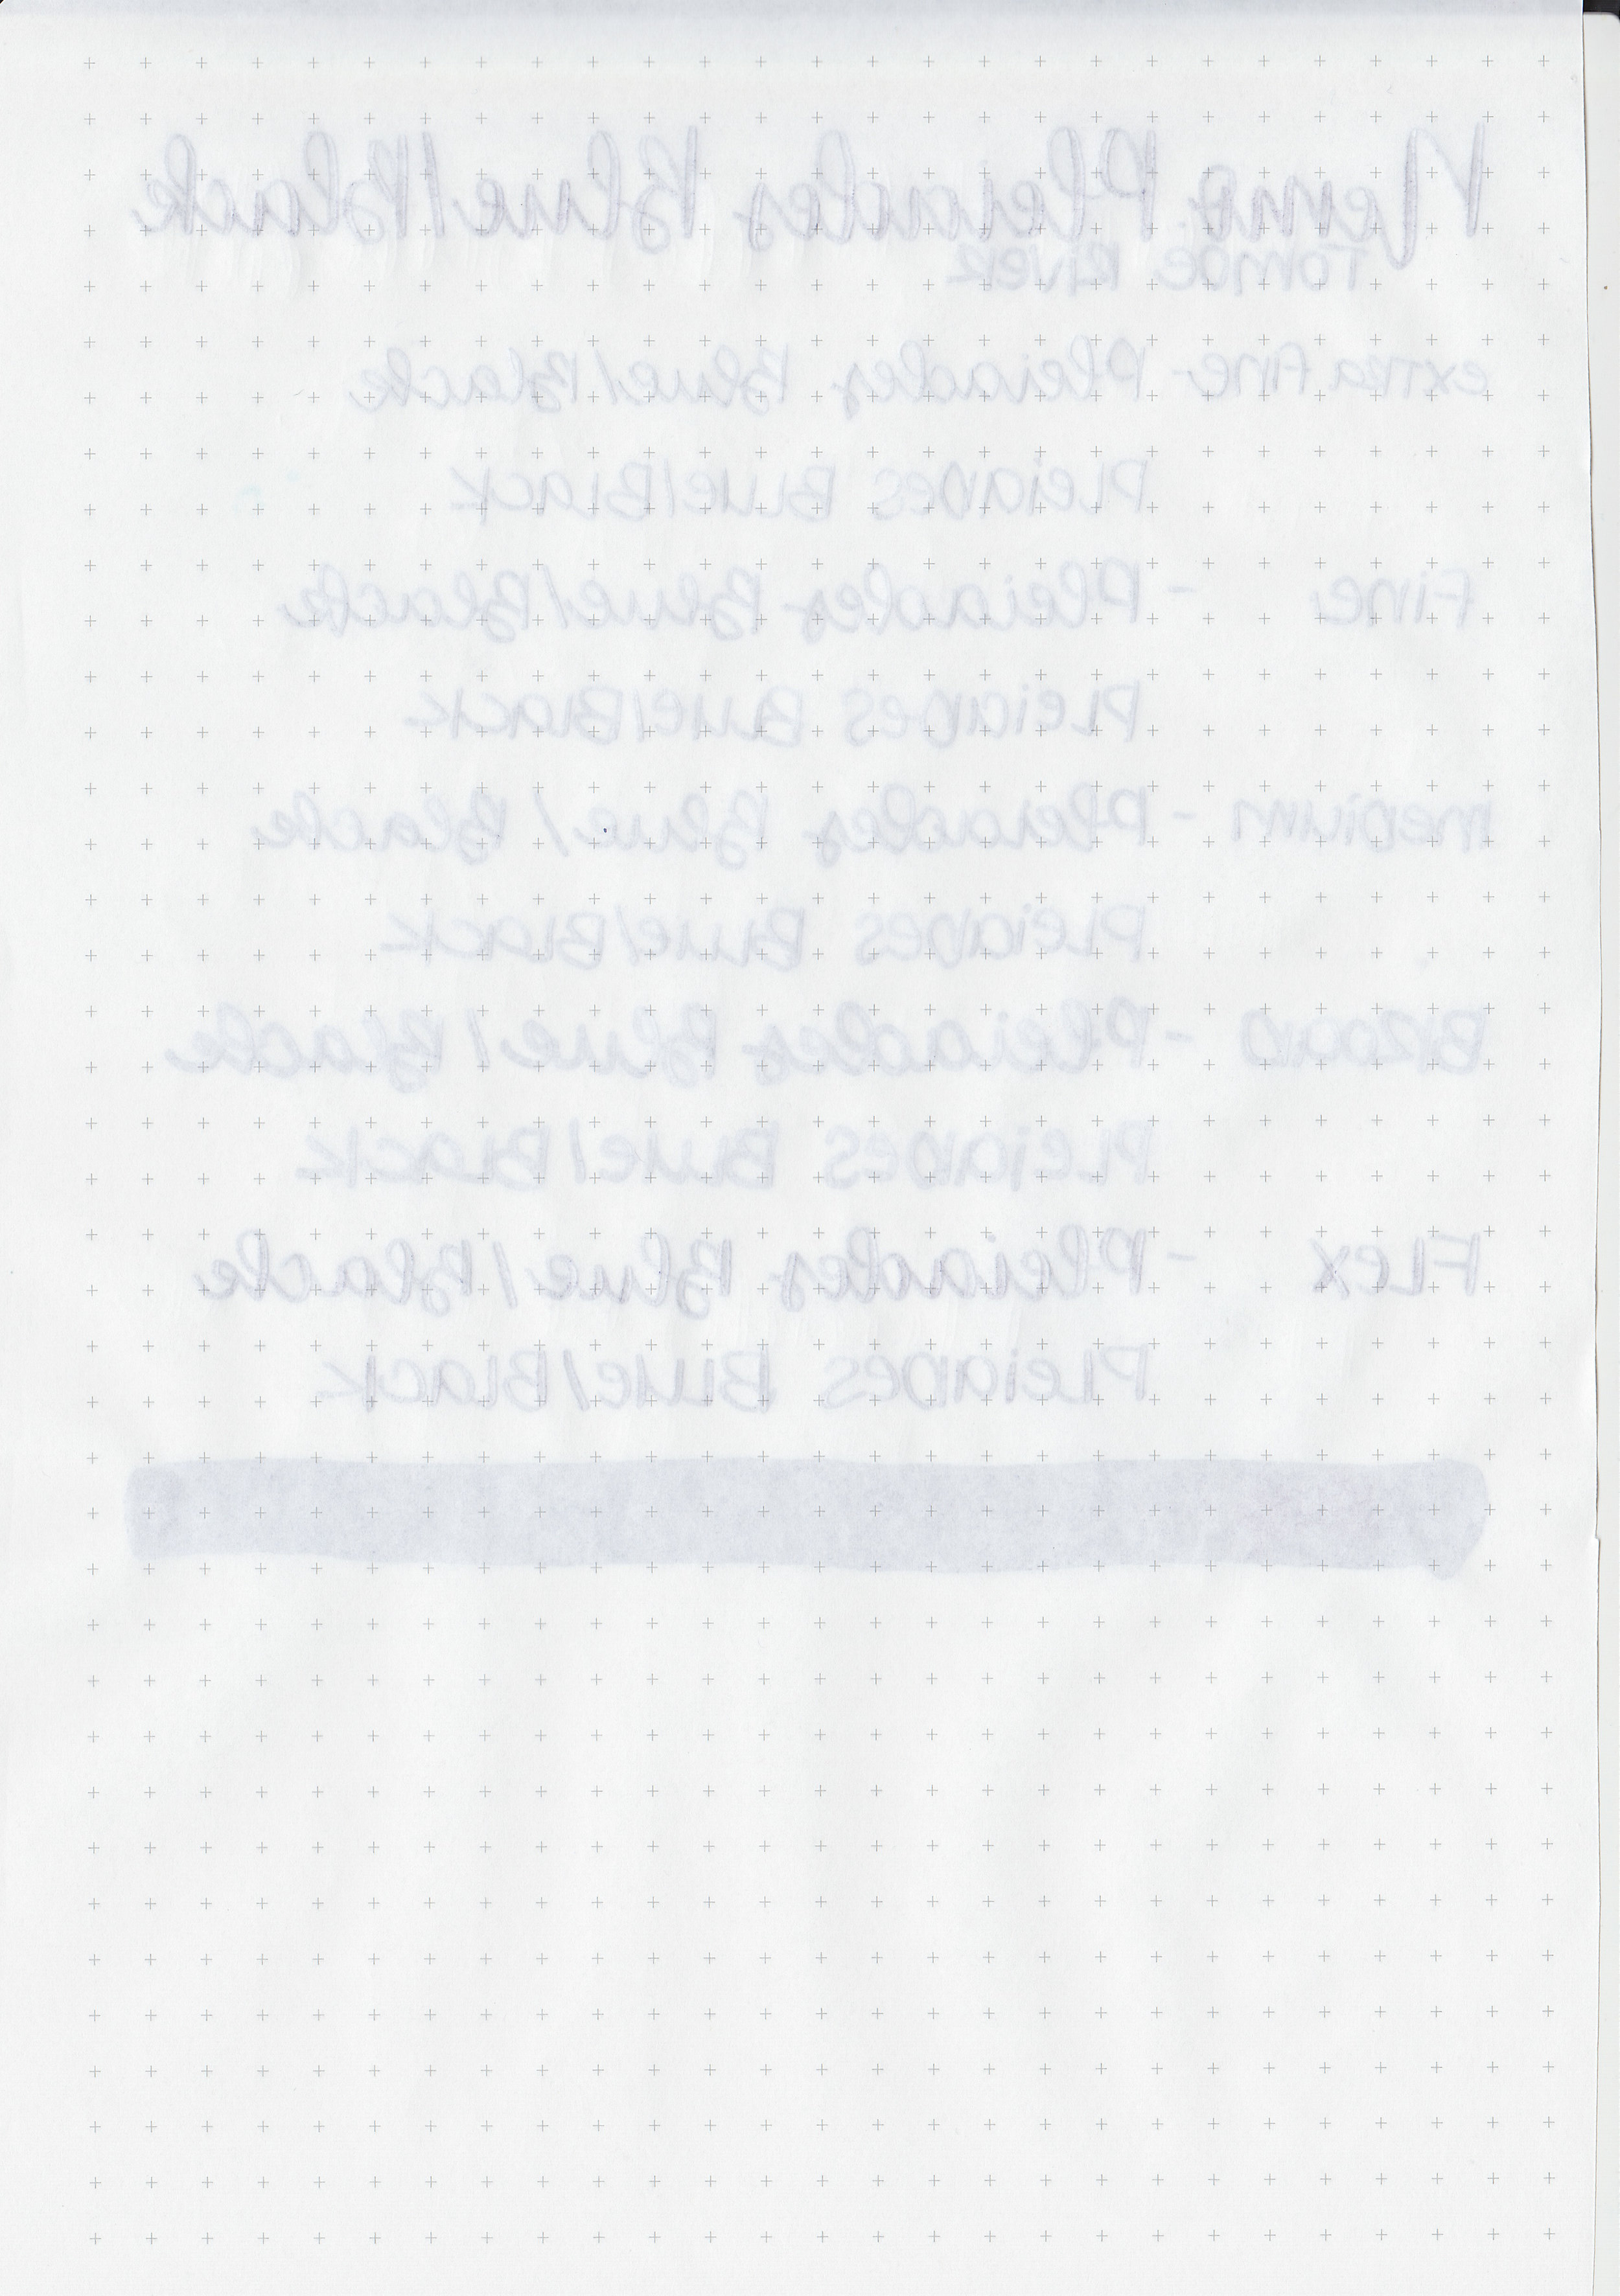 Nemo Pleiades Blue/Black
Tomoe River
extra fine - Pleiades Blue/Black
Pleiades Blue/Black
Fine - Pleiades Blue/Black
Pleiades Blue/Black
medium - Pleiades Blue/Black
Pleiades Blue/Black
Broad - Pleiades Blue/Black
Pleiades Blue/Black
Flex - Pleiades Blue/Black
Pleiades Blue/Black